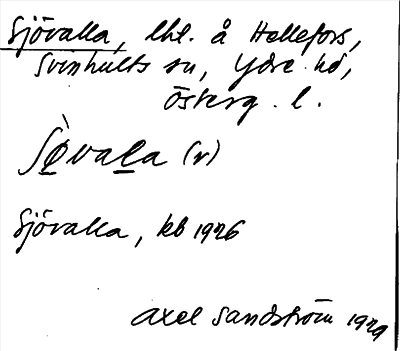 Sjövalla, lht. å Hellefors,
Svinhults sn, Ydre hd,
Österg. l.
Sø̀vala (v)
Sjövalla, kb 1926
Axel Sandström 1929